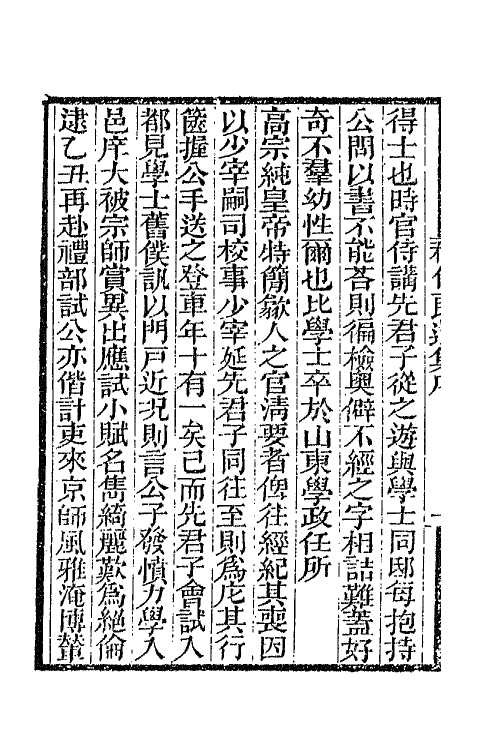 得士也時官侍講先君子從之遊與學士同邸每抱持
公問以書不能荅則徧檢奧僻不經之字相詰難蓋好
奇不羣幼性爾也比學士卒於山東學政任所
高宗純皇帝特簡歙人之官淸要者俾往經紀其喪因
以少宰嗣司校事少宰延先君子同往至則為庀其行
篋握公手送之登車年十有一矣已而先君子會試入
都見學士舊僕訊以門戸近況則言公子發憤力學入
邑庠大被宗師賞異出應試小賦名雋綺麗歎為絕倫
逮乙丑再赴禮部試公亦偕計吏來京師風雅淹博輦